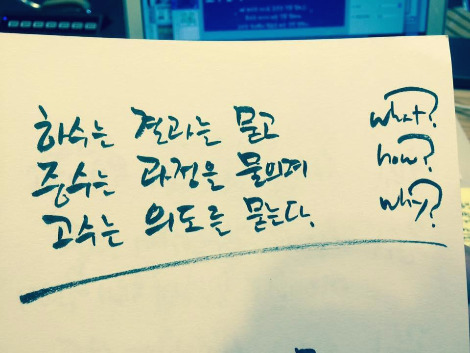 하수는 결과는 묻고 what?
중수는 과정을 물으며 how?
고수는 의도를 묻는다. why?